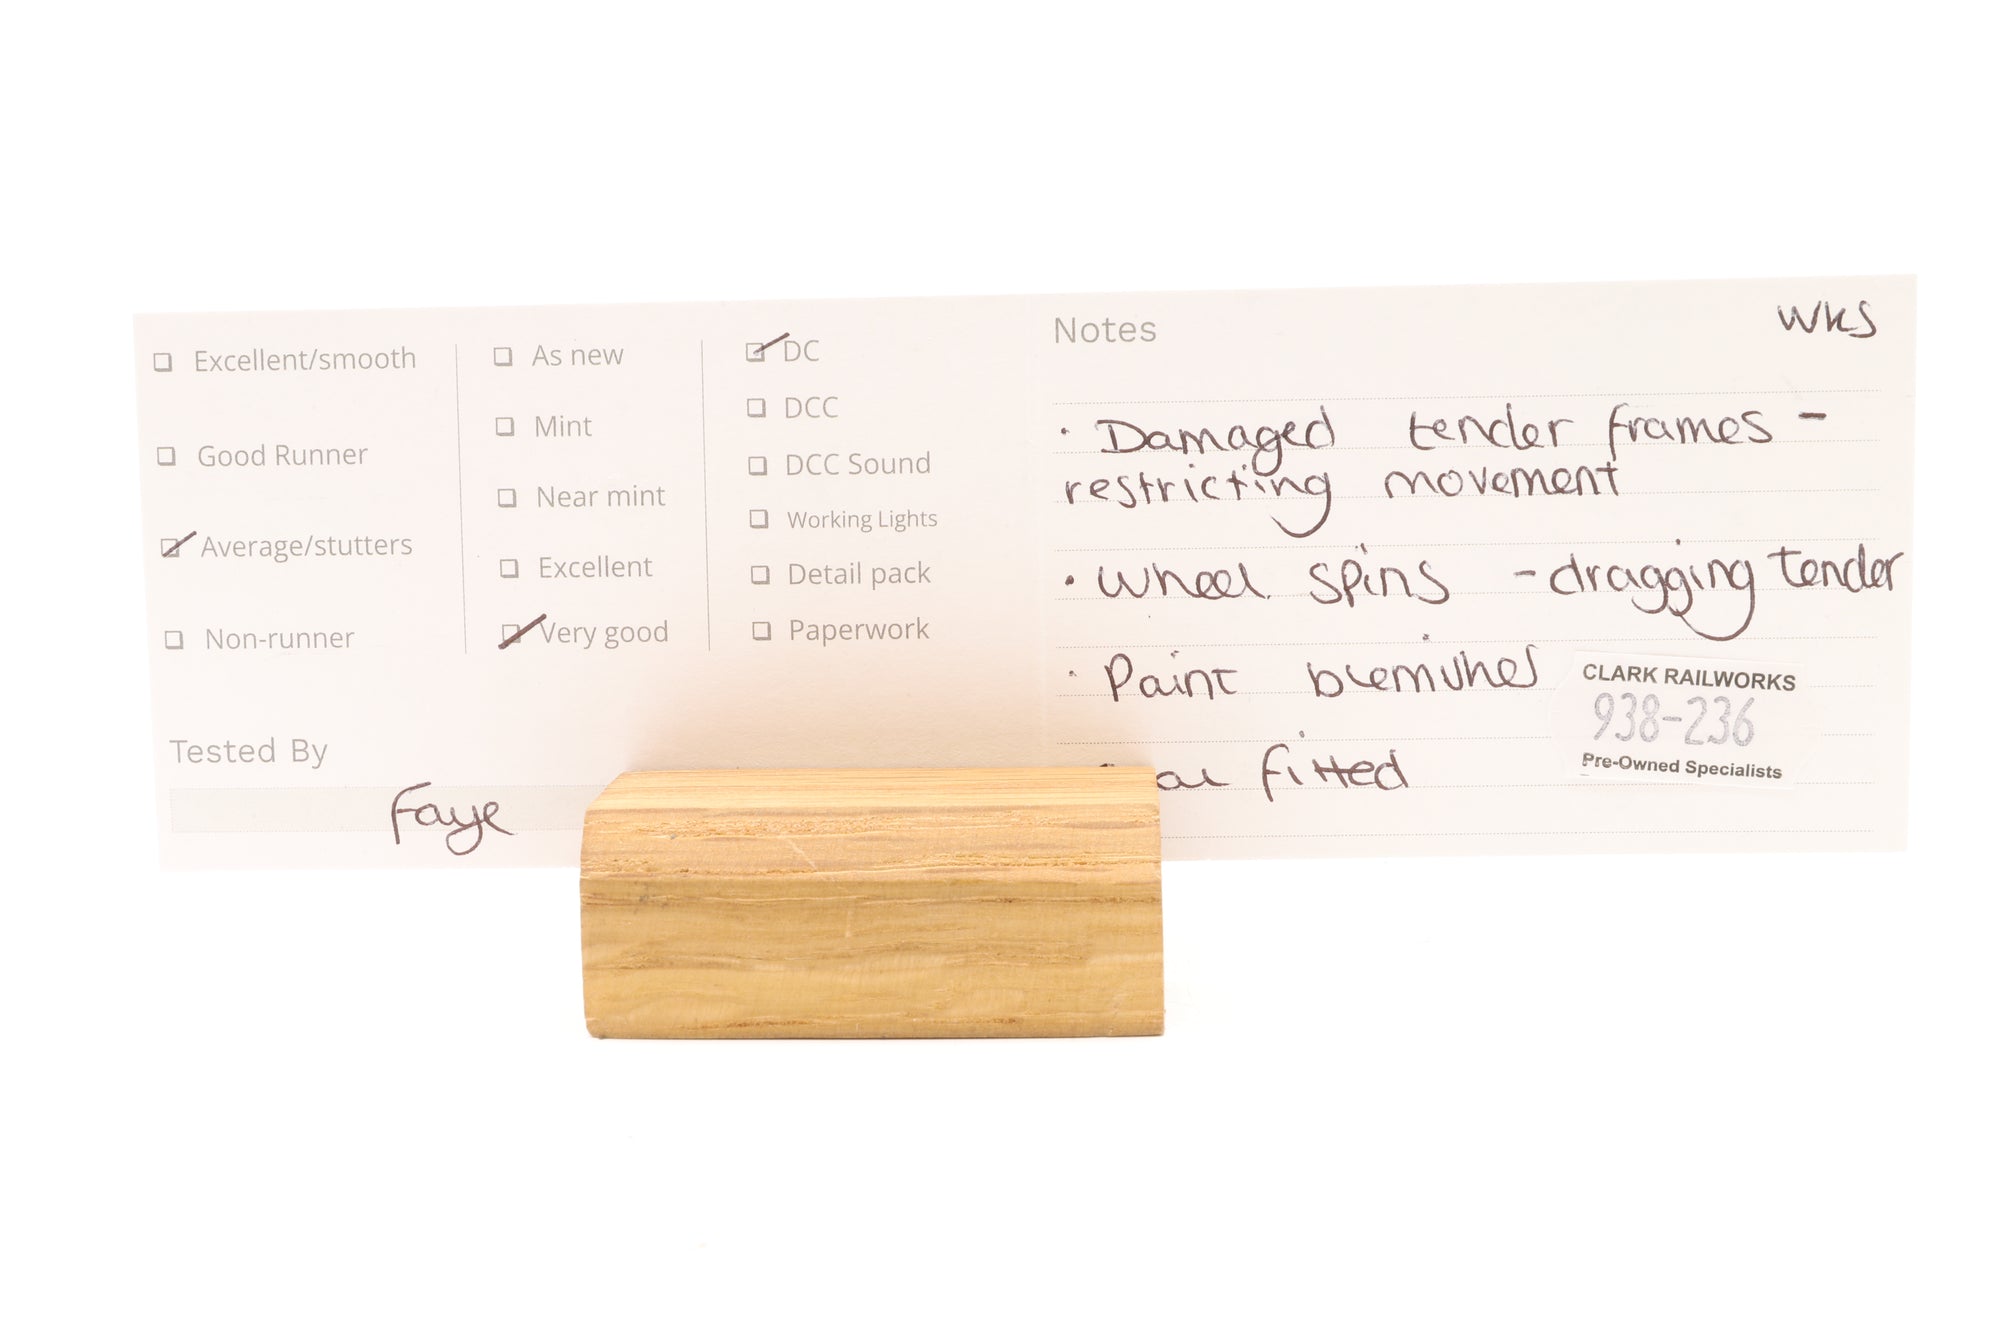 Excellent/smooth
Good Runner
Average/stutters
Non-runner
As new
Mint
Near mint
Excellent
Very good
DC
DCC
DCC Sound
Working Lights
Detail pack
Paperwork
Tested By
Faye
Notes
WKS
· Damaged tender frames -
restricting movement
· Wheel spins - dragging tender
· Paint blemishes
fitted
CLARK RAILWORKS
938-236
Pre-Owned Specialists